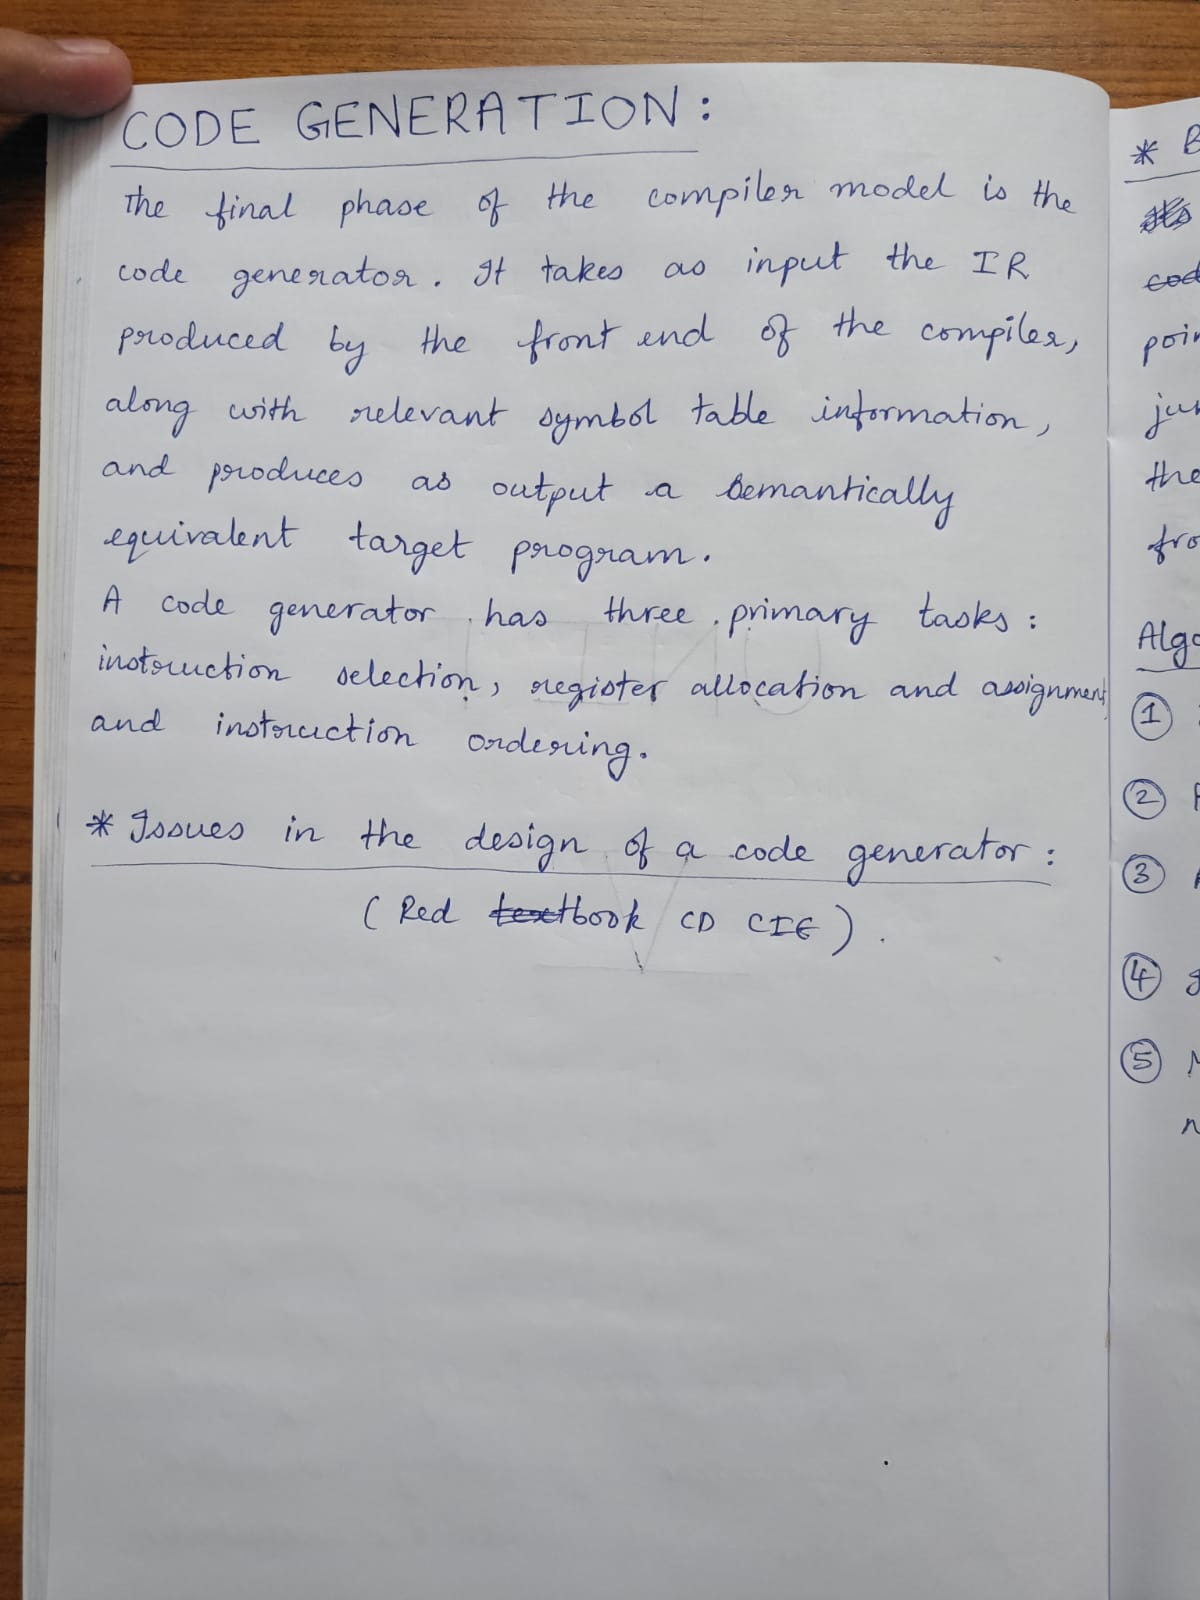 CODE GENERATION:
the final phase of the compiler model is the
code generator. It takes as input the IR
produced by the front end of the compiler,
along with relevant symbol table information,
and produces as output a semantically
equivalent target program.
A code generator has three primary tasks:
instruction selection, register allocation and assignment,
and instruction ordering.
* Issues in the design of a code generator:
(Red textbook CD CIE).
* B
cod
poin
jum
the
fro
Algo
1
2
3
4
5